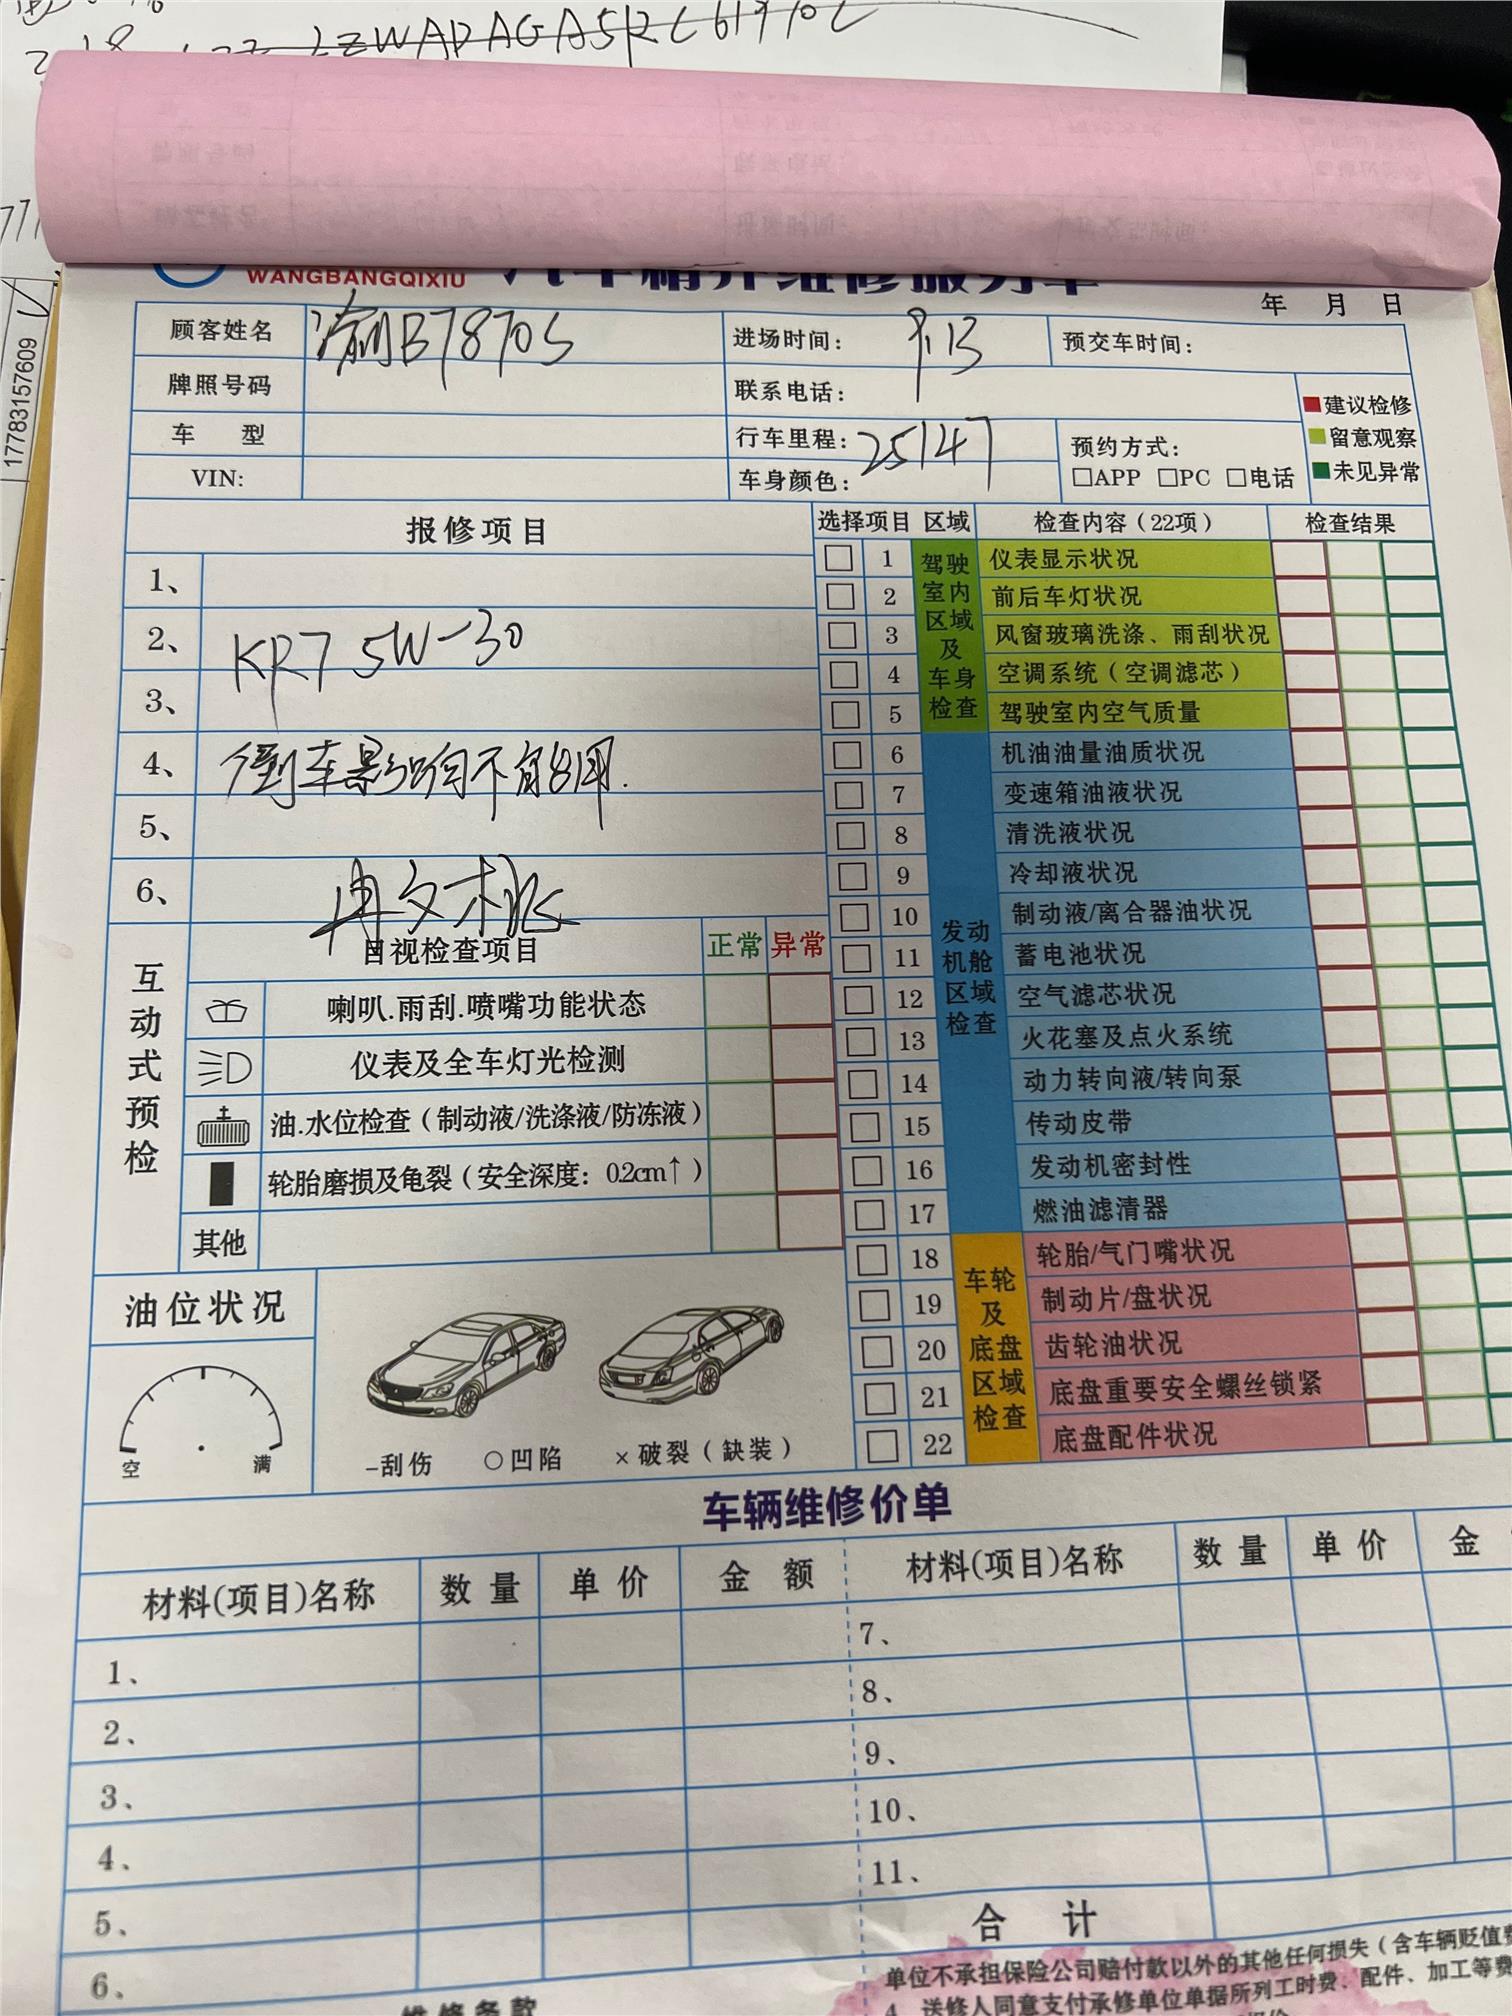 LZWADAGA5RC619702
17783157609
WANGBANGQIXIU 汽车精养维修服务单
年 月 日
顾客姓名 渝B7870S 进场时间: 9.13 预交车时间:
牌照号码 联系电话:
车 型 行车里程: 25147 预约方式:
VIN: 车身颜色: □APP □PC □电话
建议检修
留意观察
未见异常
报修项目
1、
2、 KR7 5W-30
3、
4、 倒车影响不能用.
5、
6、
选择项目 区域 检查内容(22项) 检查结果
驾驶室内区域及车身检查
1 仪表显示状况
2 前后车灯状况
3 风窗玻璃洗涤、雨刮状况
4 空调系统(空调滤芯)
5 驾驶室内空气质量
发动机舱区域检查
6 机油油量油质状况
7 变速箱油液状况
8 清洗液状况
9 冷却液状况
10 制动液/离合器油状况
11 蓄电池状况
12 空气滤芯状况
13 火花塞及点火系统
14 动力转向液/转向泵
15 传动皮带
16 发动机密封性
17 燃油滤清器
车轮及底盘区域检查
18 轮胎/气门嘴状况
19 制动片/盘状况
20 齿轮油状况
21 底盘重要安全螺丝锁紧
22 底盘配件状况
互动式预检
目视检查项目 正常 异常
喇叭.雨刮.喷嘴功能状态
仪表及全车灯光检测
油.水位检查(制动液/洗涤液/防冻液)
轮胎磨损及龟裂(安全深度: 0.2cm↑)
其他
油位状况
空 满
-刮伤 ○凹陷 ×破裂(缺装)
车辆维修价单
材料(项目)名称 数量 单价 金额 材料(项目)名称 数量 单价 金
1、
2、
3、
4、
5、
6、
7、
8、
9、
10、
11、
合 计
单位不承担保险公司赔付款以外的其他任何损失(含车辆贬值费
4、送修人同意支付承修单位单据所列工时费、配件、加工等费
维修条款